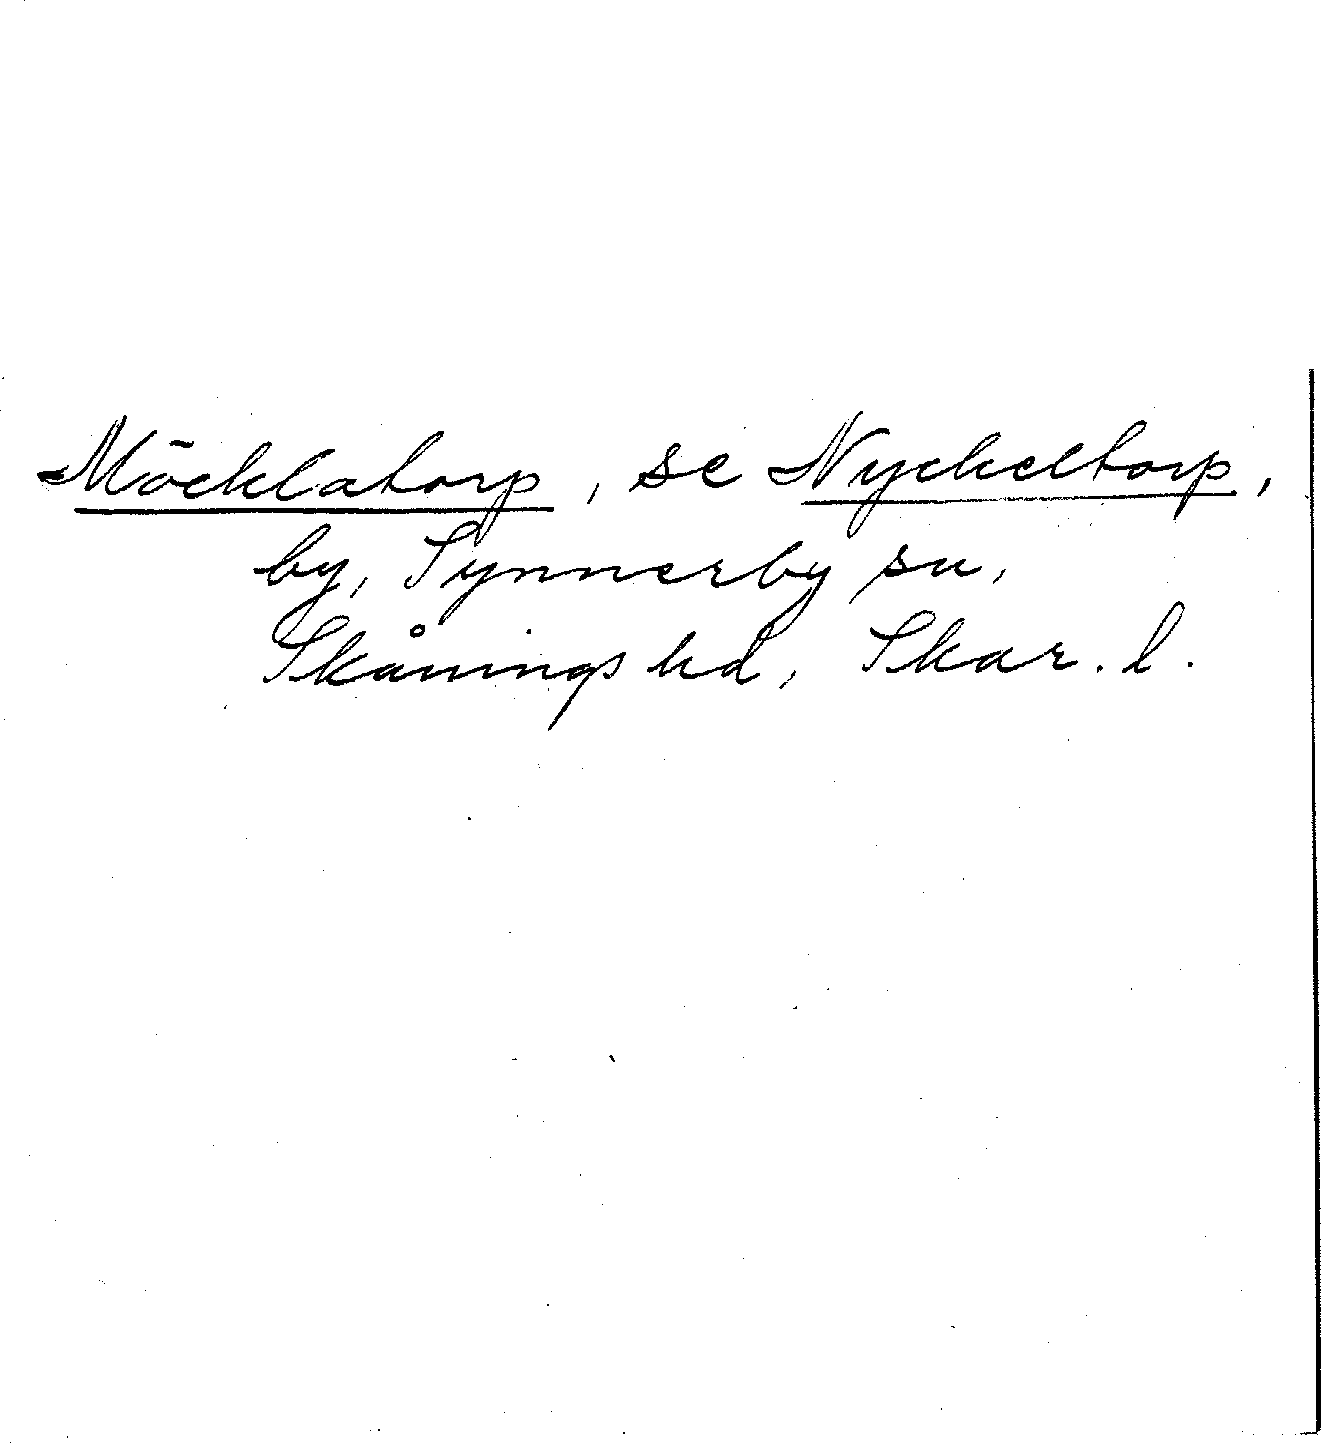 Möcklatorp, se Nyckeltorp,
by, Synnerby sn,
Skånings hd, Skar. l.